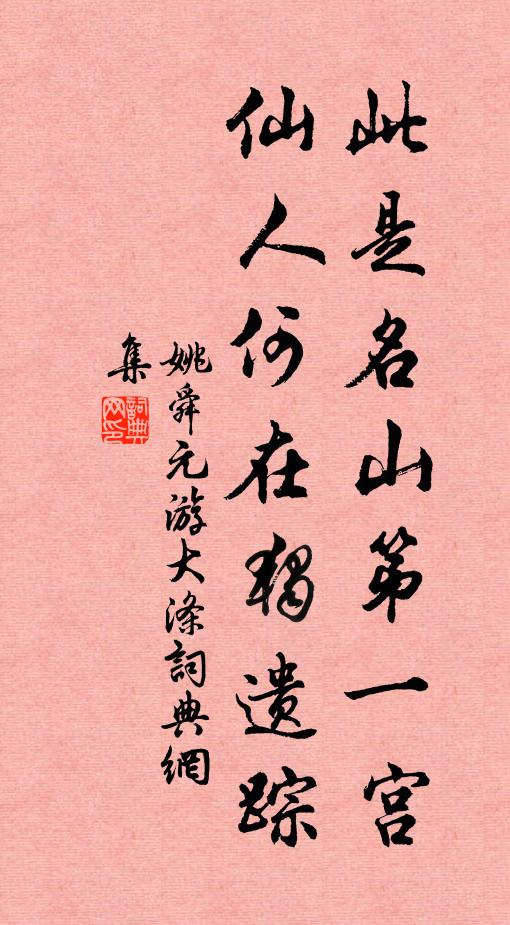 此是名山第一宫
仙人何在独遗踪
姚舜元游大涤詞典網
集
詞典网印